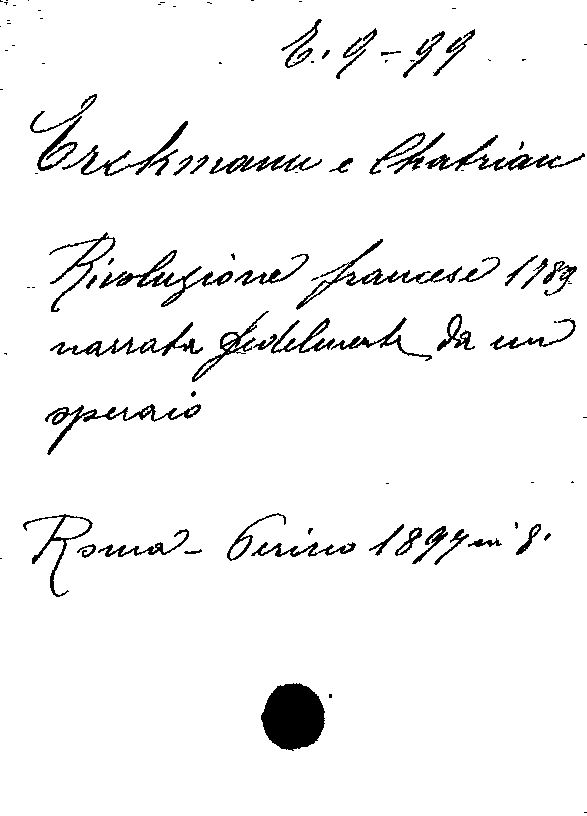 E. 9 - 99
Erckmann e Chatrian
Rivoluzione francese 1789
narrata fedelmente da un
operaio
Roma - Perino 1897 in 8.